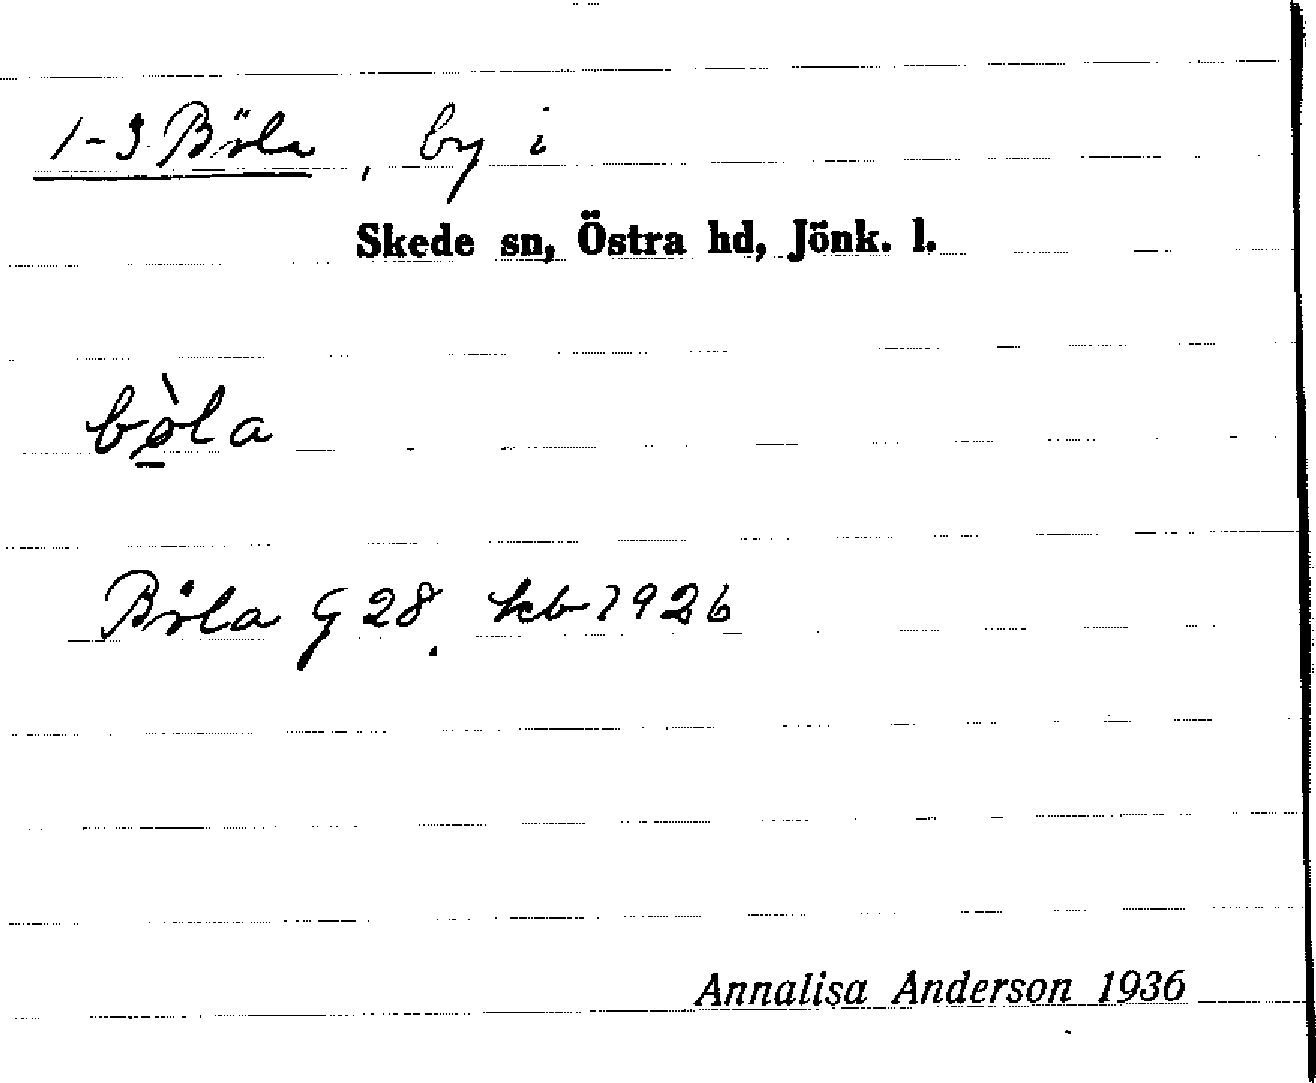 1-3 Böla, by i
Skede sn, Östra hd, Jönk. l.
bø̱̀la
Böla G 28. kb 1926
Annalisa Anderson 1936